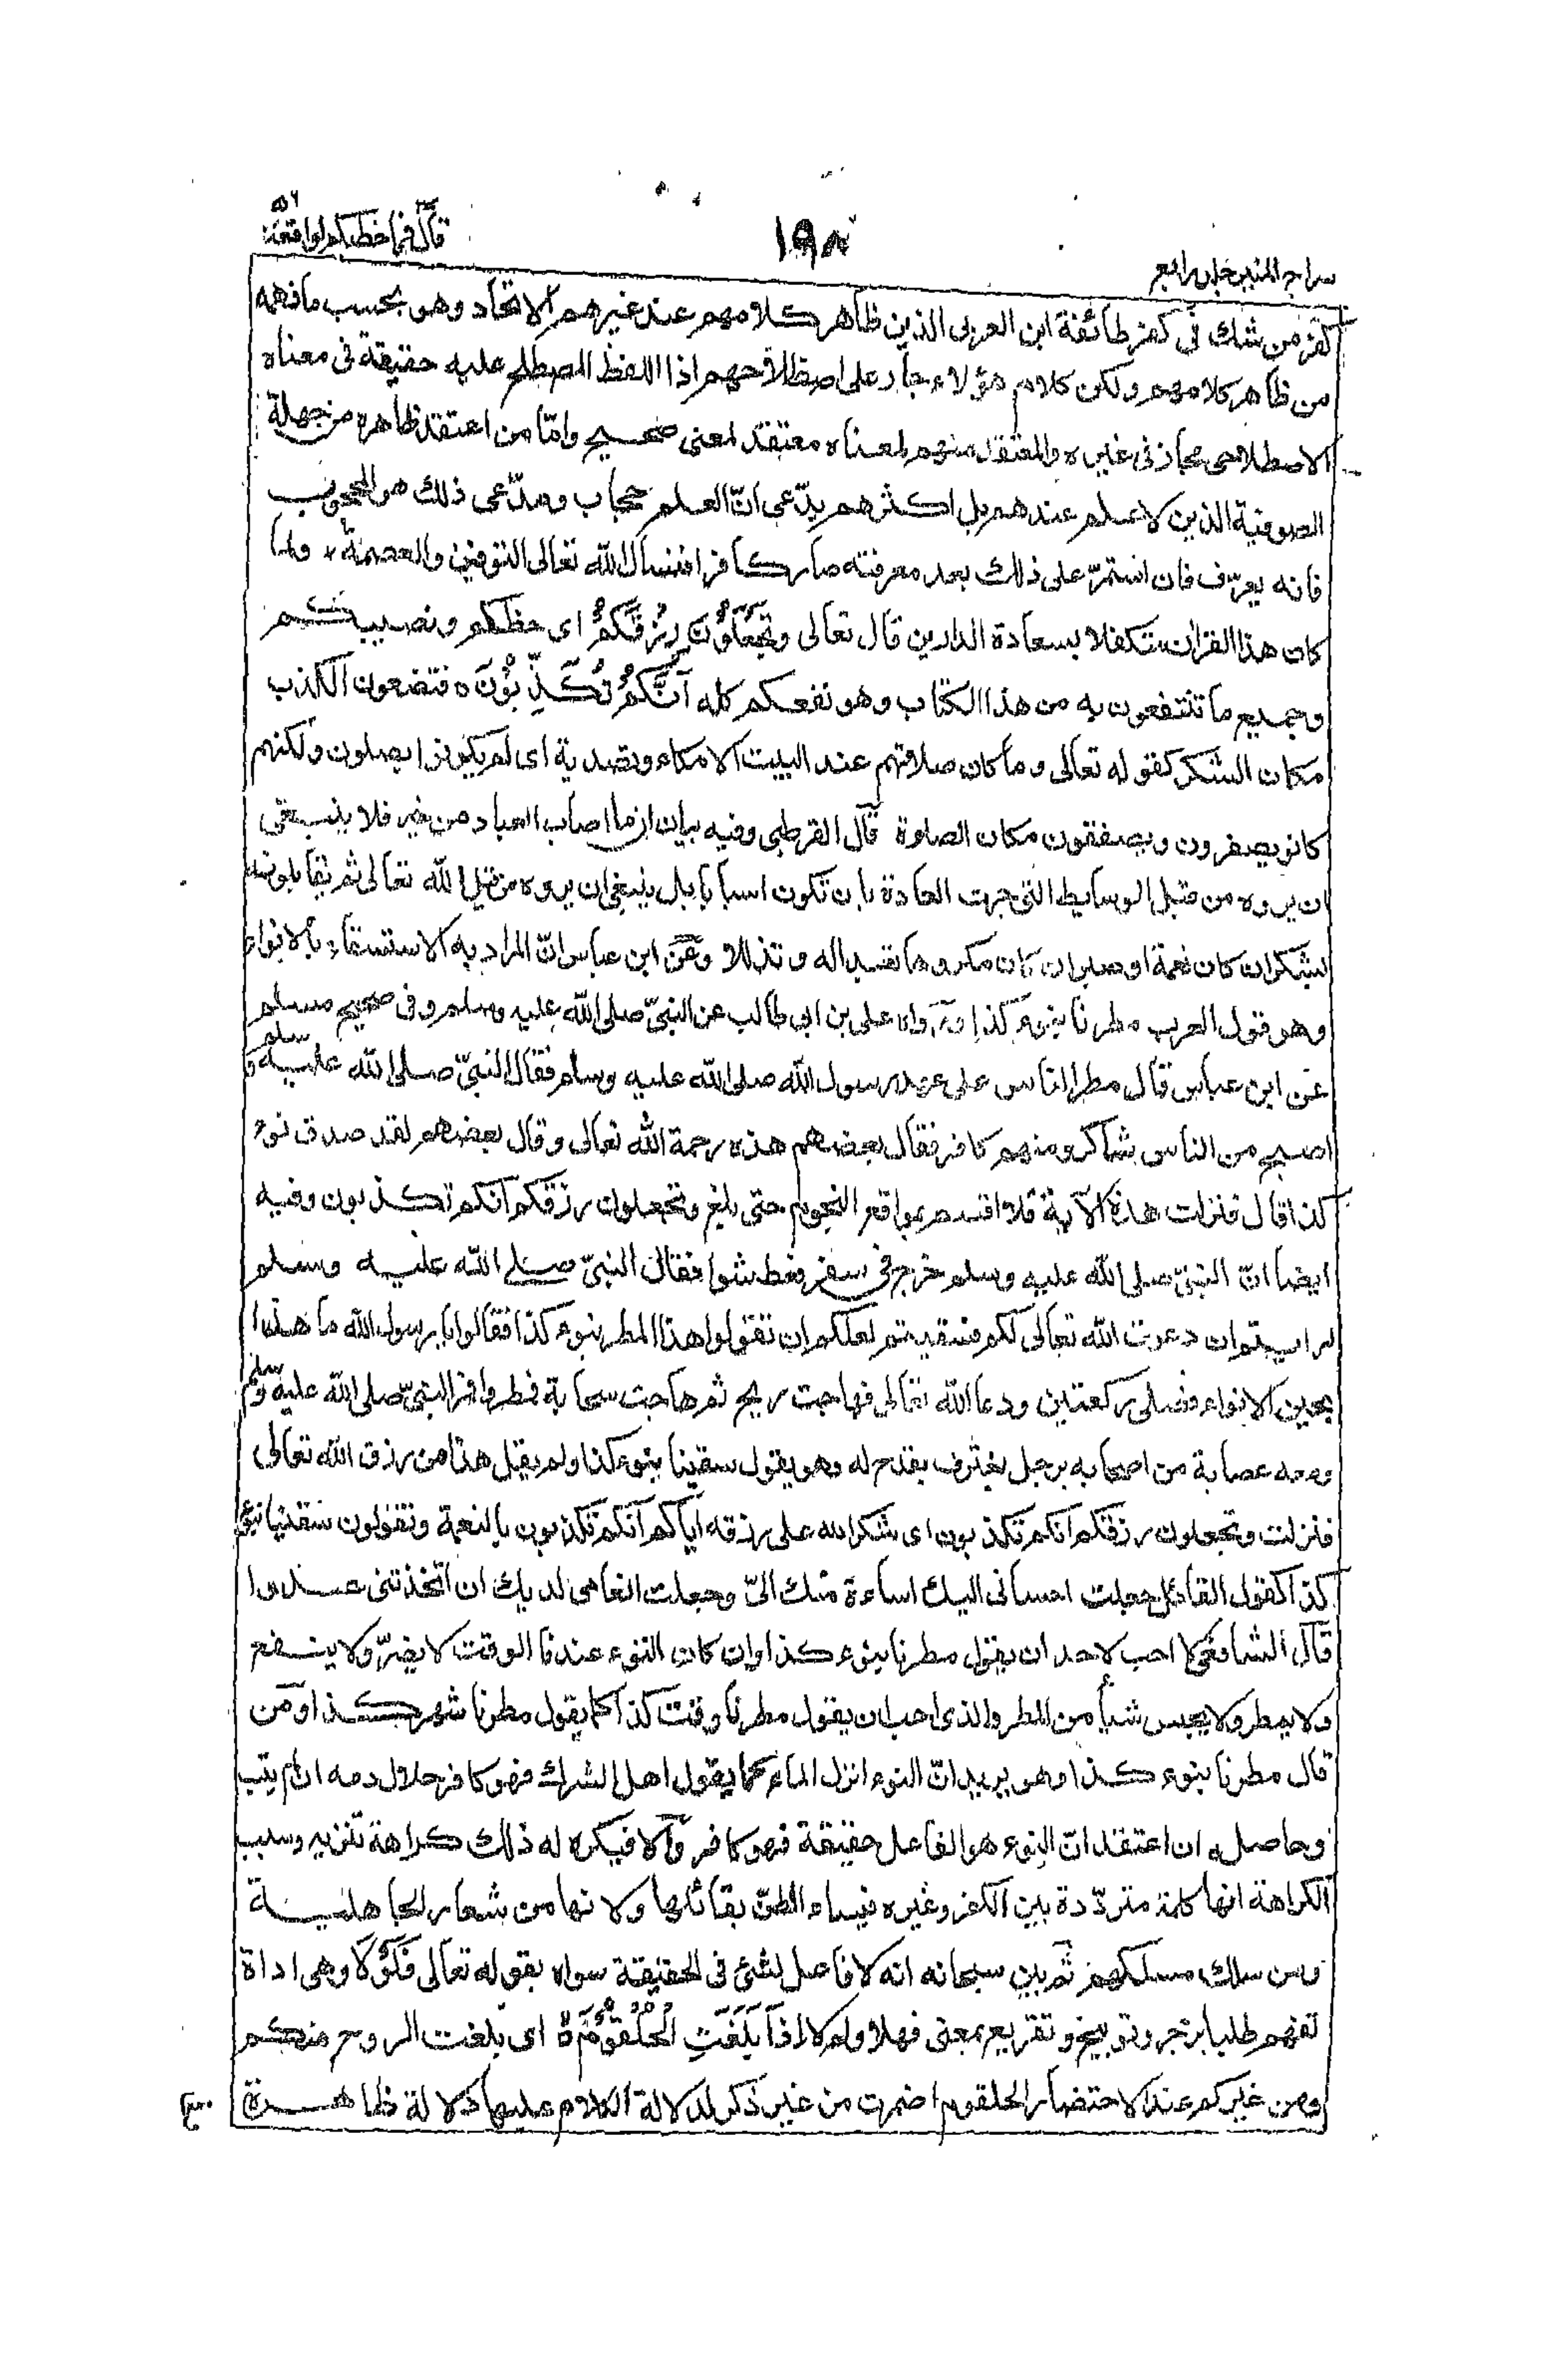 قال فما خطبكم
الواقعة ٥٦
١٩٨
سراج المنير جلد رابع
كفر من شك فى كفر طائفة ابن العربى الذين ظاهر كلامهم عند غيرهم الاتحاد وهو بحسب ما فهمه
من ظاهر كلامهم ولكن كلام هؤلاء جار على اصطلاحهم اذ اللفظ المصطلح عليه حقيقة فى معناه
الاصطلاحى مجاز فى غيره والمعتقد منهم لمعناه معتقد لمعنى صحيح وامّا من اعتقد ظاهره من جهلة
الصوفية الذين لا علم عندهم بل اكثرهم يدّعى انّ العلم حجاب ومدّعى ذلك هو المحجوب
فانه يعرّف فان استمرّ على ذلك بعد معرفته صار كافرا فنسأل الله تعالى التوفيق والعصمة، ولما
كان هذا القران متكفلا بسعادة الدارين قال تعالى وَتَجْعَلُوْنَ رِزْقَكُمْ اى حظكم ونصيبكم
وجميع ما تنتفعون به من هذا الكتاب وهو نفعكم كله اَنَّكُمْ تُكَذِّبُوْنَ ه فتضعون الكذب
مكان الشكر كقوله تعالى وما كان صلاتهم عند البيت الا مكاء وتصدية اى لم يكونوا يصلون ولكنهم
كانو يصفرون ويصفقون مكان الصلوة قال القرطبى وفيه بيان ان ما اصاب العباد من خير فلا ينبغى
ان يروه من قبل الوسايط التى جرت العادة بان تكون اسبابا بل ينبغى ان يروه من قبل الله تعالى ثم يقابلونه
بشكر ان كان نعمة او صبر ان كان مكروها تعبدا له وتذللا وعن ابن عباس انّ المراد به الاستسقاء بالانواء
وهو قول العرب مطرنا بنوء كذا ورواه على بن ابى طالب عن النبىّ صلى الله عليه وسلم وفى صحيح مسلم
عن ابن عباس قال مطر الناس على عهد رسول الله صلى الله عليه وسلم فقال النبىّ صلى الله عليه وسلم
اصبح من الناس شاكر ومنهم كافر فقال بعضهم هذه رحمة الله تعالى وقال بعضهم لقد صدق نوء
كذا قال فنزلت هذه الآية فلا اقسم بمواقع النجوم حتى بلغ وتجعلون رزقكم انكم تكذبون وفيه
ايضا انّ النبىّ صلى الله عليه وسلم خرج فى سفر فعطشوا فقال النبىّ صلى الله عليه وسلم
ارايتم ان دعوت الله تعالى لكم فسقيتم لعلكم ان تقولوا هذا المطر بنوء كذا فقالوا يا رسول الله ما هذا
بحين الانواء فصلى ركعتين ودعا الله تعالى فهاجت ريح ثم هاجت سحابة فمطروا فمر النبىّ صلى الله عليه وسلم
ومعه عصابة من اصحابه برجل يغترف بقدح له وهو يقول سقينا بنوء كذا ولم يقل هذا من رزق الله تعالى
فنزلت وتجعلون رزقكم انكم تكذبون اى شكر الله على رزقه اياكم انكم تكذبون بالنعمة وتقولون سقينا بنوء
كذا كقول القائل جعلت احسانى اليك اساءة منك الىّ وجعلت انعامى لديك ان اتخذتنى عدوا
قال الشافعى لا احب لاحد ان يقول مطرنا بنوء كذا وان كان النوء عندنا الوقت لا يضرّ ولا ينفع
ولا يمطر ولا يحبس شيأ من المطر والذى احب ان يقول مطرنا وقت كذا كما يقول مطرنا شهر كذا ومن
قال مطرنا بنوء كذا وهو يريد انّ النوء انزل الماء كما يقول اهل الشرك فهو كافر حلال دمه ان لم يتب
وحاصله ان اعتقد انّ النوء هو الفاعل حقيقة فهو كافر والا فيكره له ذلك كراهة تنزيه وسبب
الكراهة انها كلمة متردّدة بين الكفر وغيره فيساء الظنّ بقائلها ولانها من شعار الجاهلية
ومن سلك مسلكهم ثم بين سبحانه انه لا فاعل لشئ فى الحقيقة سواه بقوله تعالى فَلَوْلَا وهى اداة
تفهم طلبا بزجر وتوبيخ وتقريع بمعنى فهلا ولم لا اِذَا بَلَغَتِ الْحُلْقُوْمَ ه اى بلغت الروح منكم
ومن غيركم عند الاحتضار الحلقوم اضمرت من غير ذكر لدلالة الكلام عليها دلالة ظاهرة